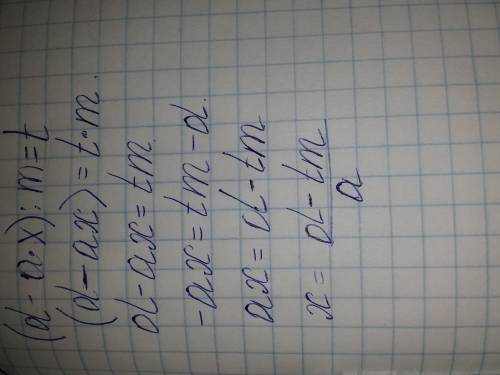 (d - a·x) : m = t
(d - ax) = t·m.
d - ax = tm
-ax = tm - d.
ax = d - tm
x = \frac{d - tm}{a}